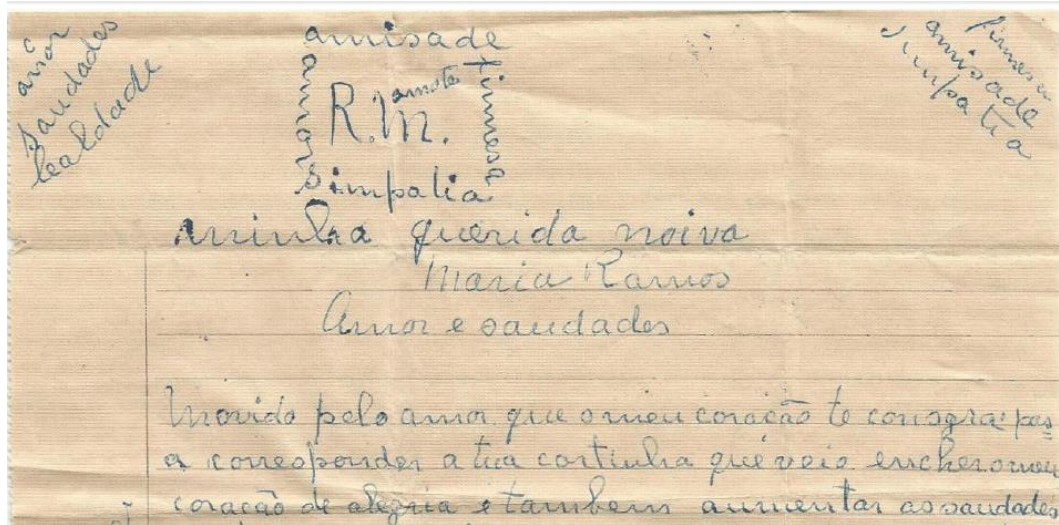 amôr
saudades
lealdade
amisade
amor
R.M.
firmesa
simpatia
firmesa
amisade
simpatia
minha querida noiva
Maria Ramos
Amor e saudades
Movido pelo amor que o meu coração te consagra: pas=
a corresponder a tua cartinha que veio encher o meu
coração de alegria e tambem aumentar as saudades